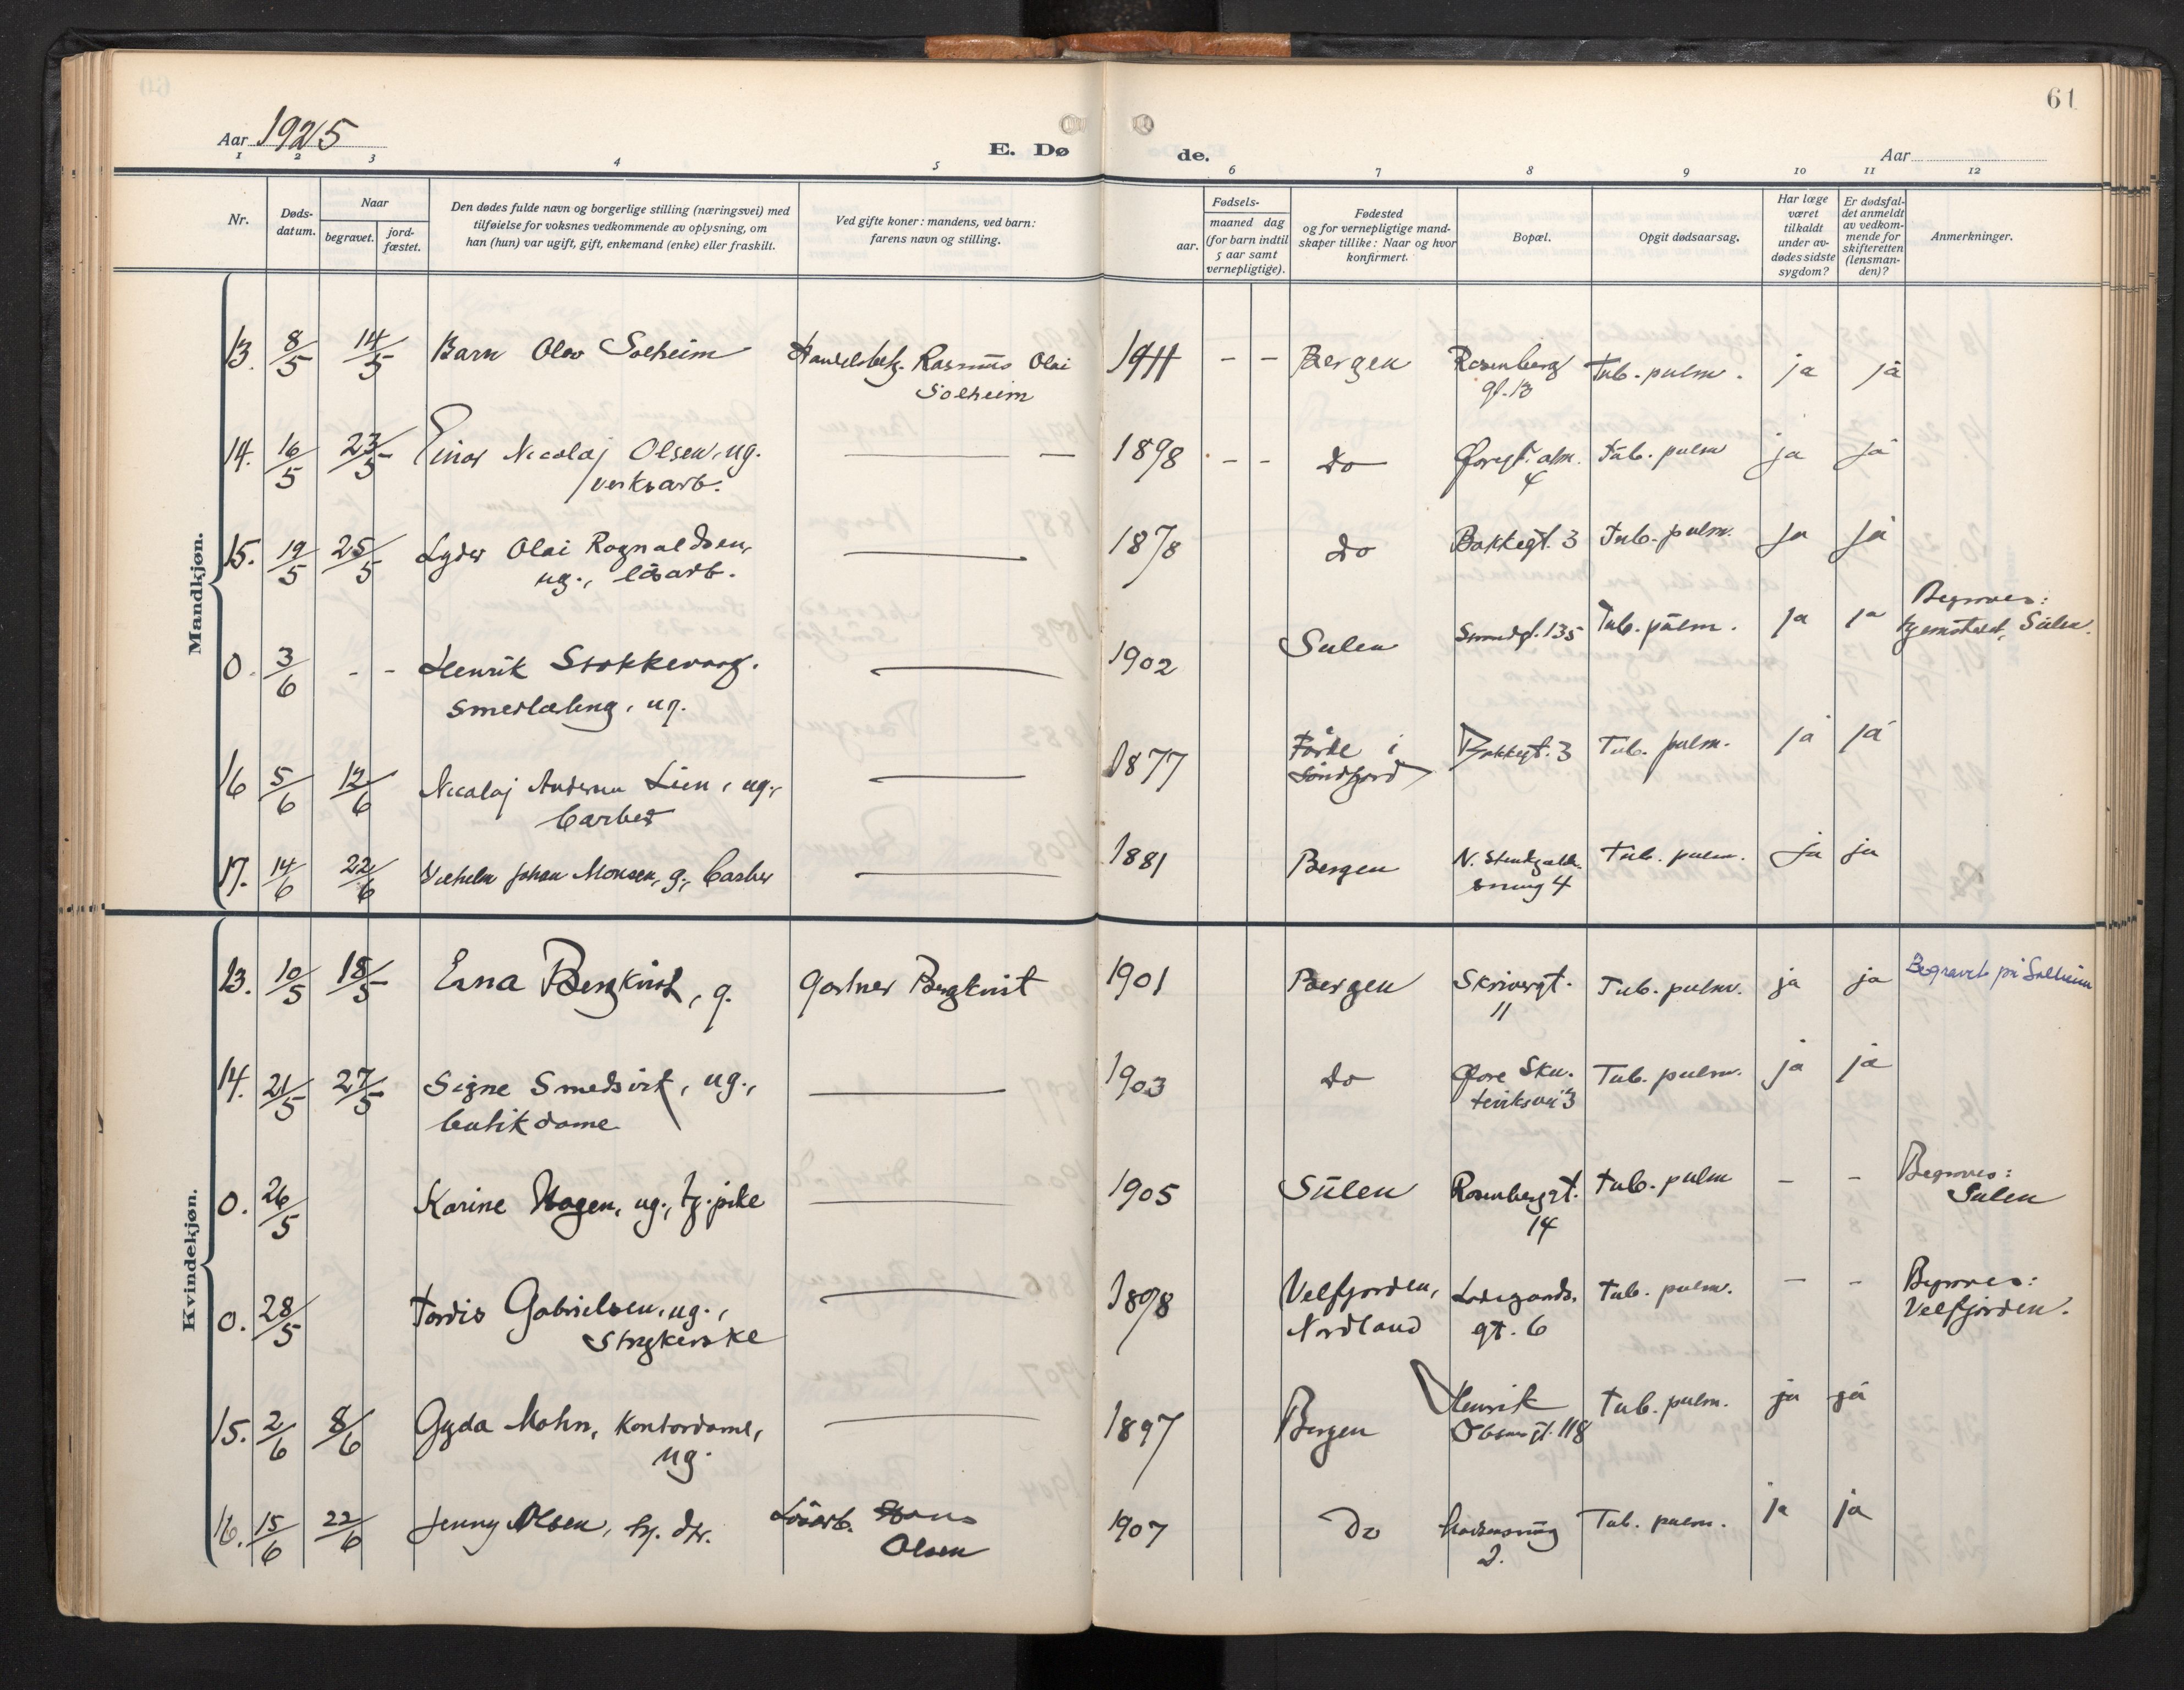 61
Aar 1925
E. Dø
de.
Aar
1 2 3 4 5 6 7 8 9 10 11 12
Nr.
Døds-
datum.
Naar
begravet.
jord-
fæstet.
Den dødes fulde navn og borgerlige stilling (næringsvei) med
tilføielse for voksnes vedkommende av oplysning, om
han (hun) var ugift, gift, enkemand (enke) eller fraskilt.
Ved gifte koner: mandens, ved barn:
farens navn og stilling.
Fødsels-
aar.
maaned dag
(for barn indtil
5 aar samt
vernepligtige).
Fødested
og for vernepligtige mand-
skaper tillike: Naar og hvor
konfirmert.
Bopæl.
Opgit dødsaarsag.
Har læge
været
tilkaldt
under av-
dødes sidste
sygdom?
Er dødsfal-
det anmeldt
av vedkom-
mende for
skifteretten
(lensman-
den)?
Anmerkninger.
Mandkjøn.
13. 8/5 14/5 Barn Olav Solheim Handelsbetj. Rasmus Olai 1911 - - Bergen Rosenberg Tub. pulm. ja ja
Solheim gt. 13
14. 16/5 23/5 Einar Nicolaj Olsen, ug. — 1898 - - do Tub. pulm ja ja
verksarb. 4
15. 19/5 25/5 Lyder Olai Rognaldsen, — 1878 do Bakkegt. 3 Tub. pulm. ja ja
ug., løsarb.
0. 3/6 - - Henrik Stokkevaag. — 1902 Sulen Strandgt. 135 Tub. pulm. ja ja Begraves:
smedlærling, ug. hjemstedet, Sulen.
16 5/6 12/6 Nicolaj Andersen Lien, ug., — 1877 Førde i Bakkegt. 3 Tub. pulm. ja ja
Søndfjord
17. 14/6 22/6 Vilhelm Johan Monsen, g., — 1881 Bergen Tub. pulm. ja ja
smug 4
Kvindekjøn.
13. 10/5 18/5 Erna Bergkvist, g. Gartner Bergkvist 1901 Bergen Skrivergt. Tub. pulm. ja ja Begravet på Solheim
11
14. 21/5 27/5 Signe Smedsvik, ug., — 1903 do Øvre Sku- Tub. pulm. ja ja
butikdame teviksvei 3
0. 26/5 Karine Hagen, ug., tj.pike — 1905 Sulen Rosenberggt. Tub. pulm - - Begraves:
14 Sulen
0. 28/5 Tordis Gabrielsen, ug., — 1898 Velfjorden, Ladegaards. Tub. pulm. - - Begraves:
Strykerske Nordland gt. 6 Velfjorden.
15. 2/6 8/6 Gyda Mohn, Kontordame, — 1897 Bergen Henrik Tub. pulm. ja ja
ug. Ibsens gt. 118
16. 15/6 22/6 Jenny Olsen, hj. dtr. Løsarb. Hans 1907 Do Tub. pulm. ja ja
Olsen 2.